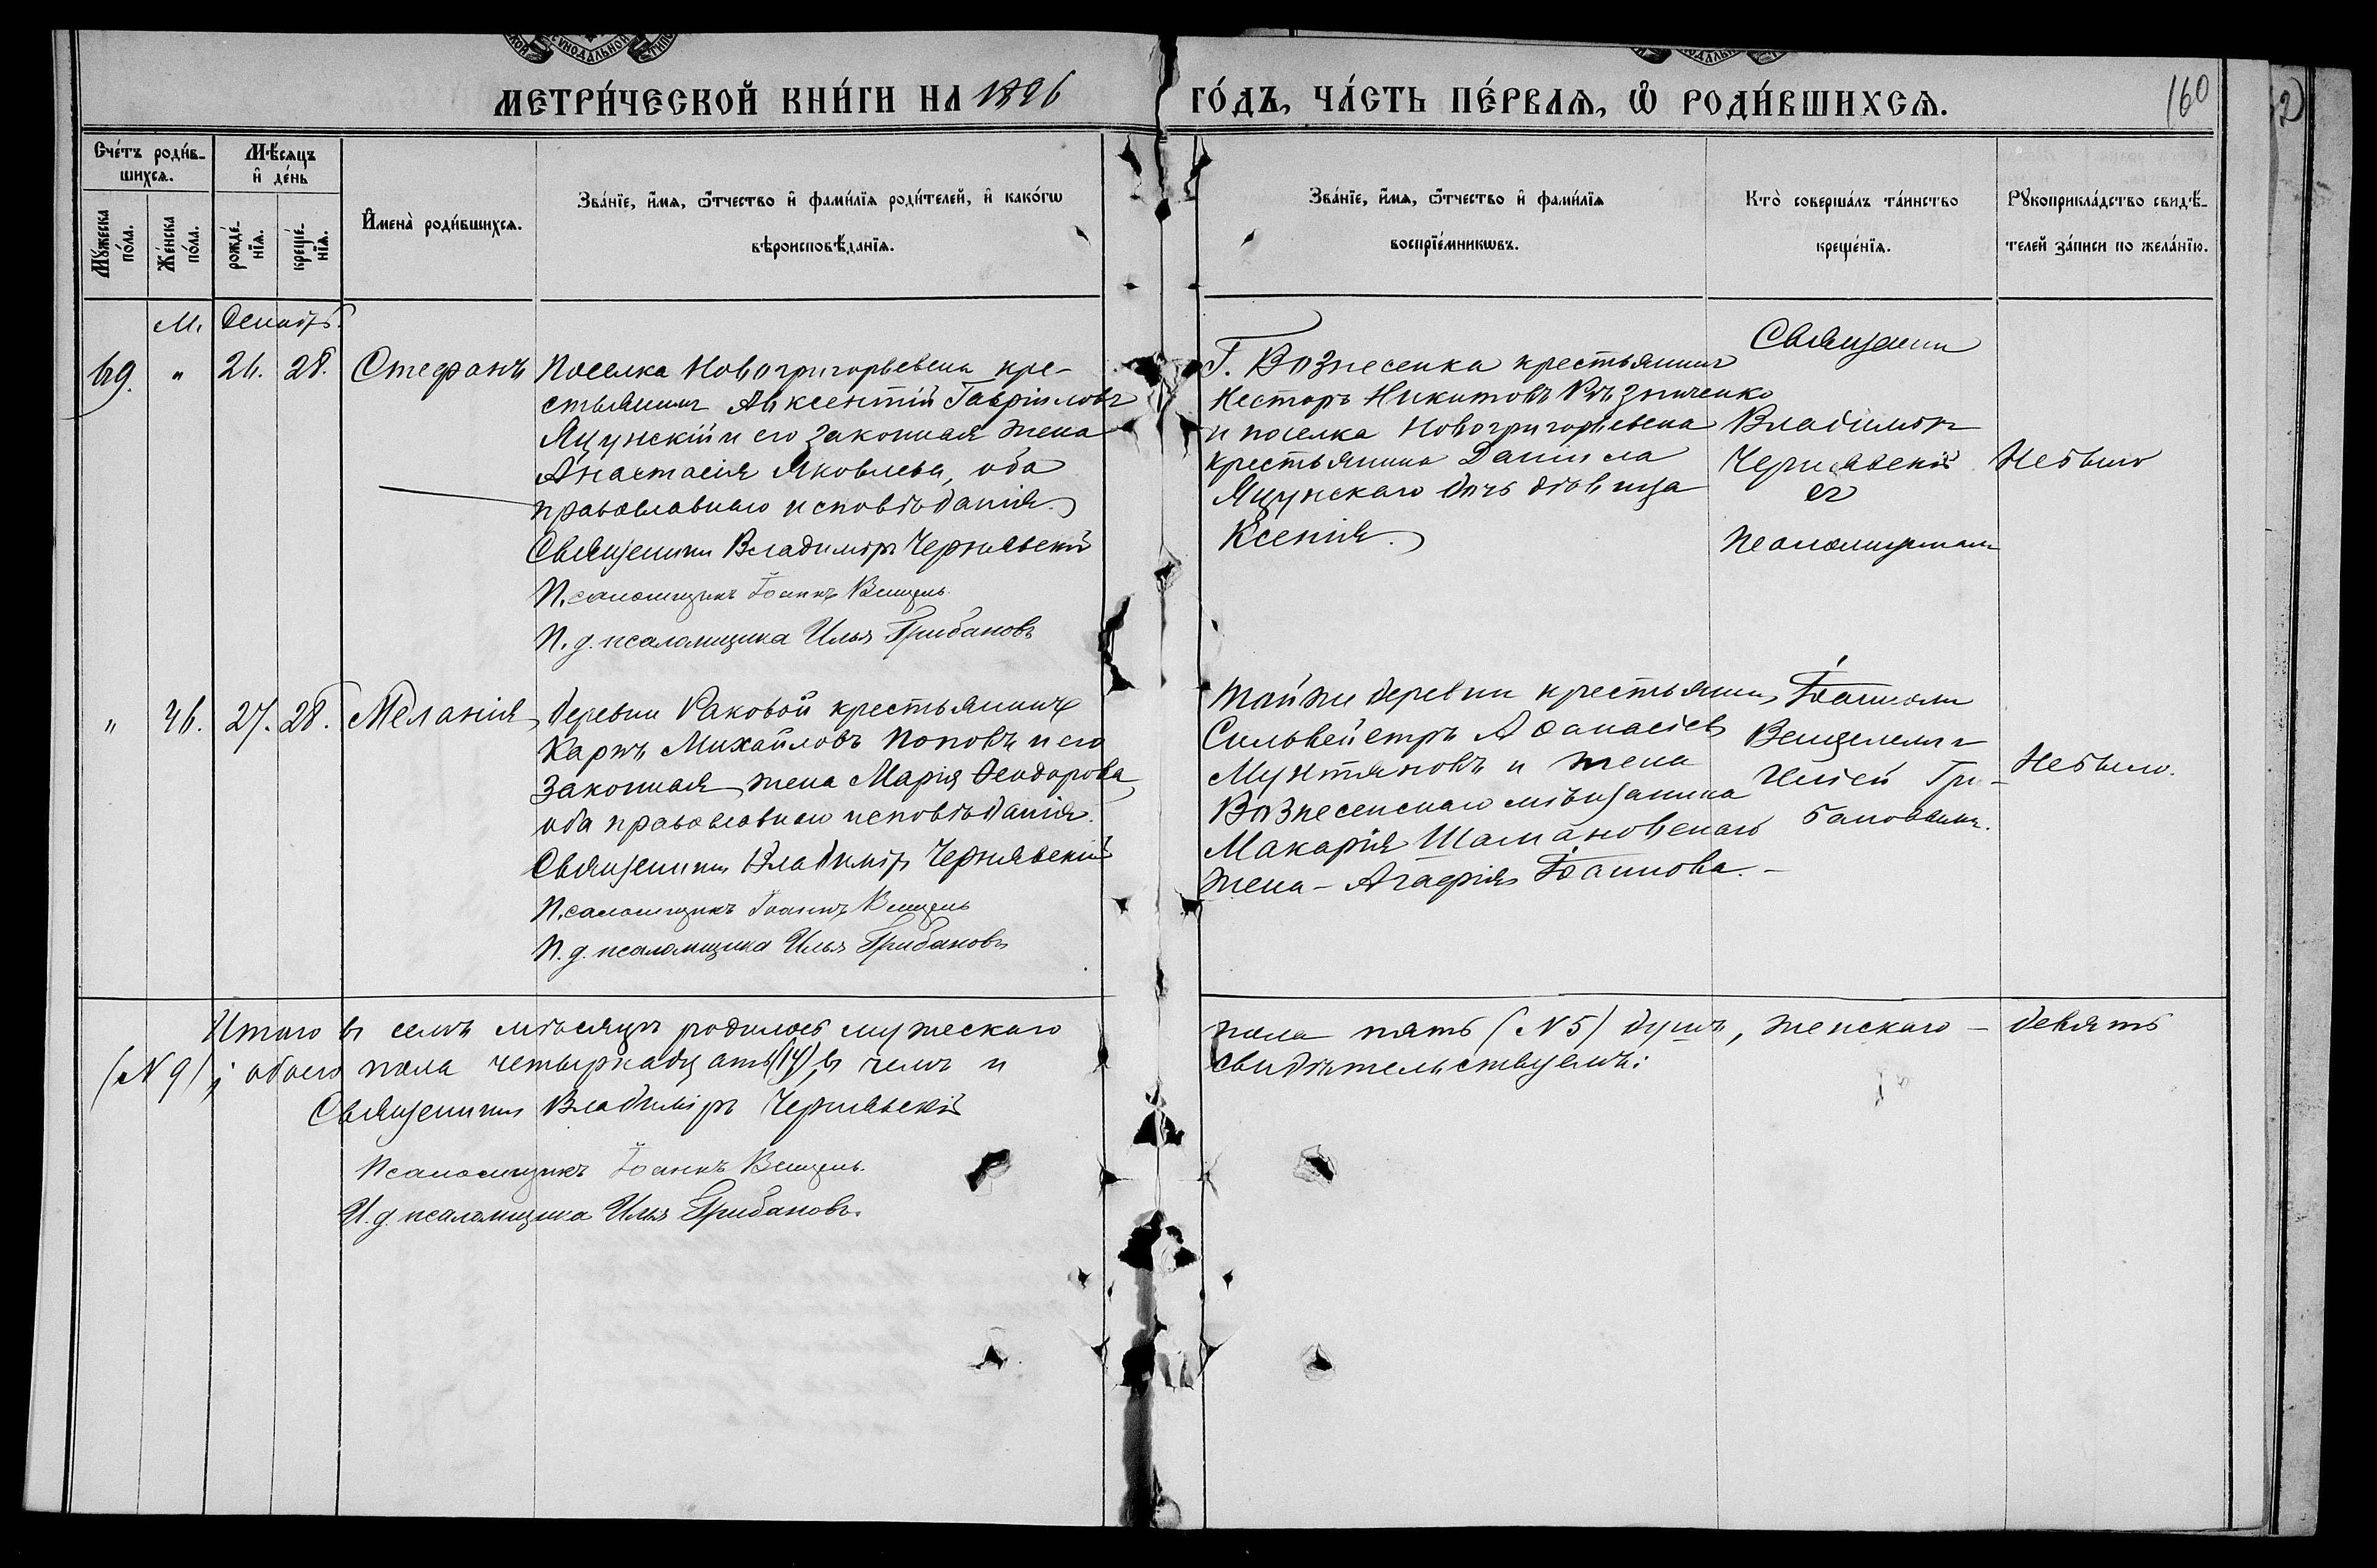 МЕТРИ́ЧЕСКОЙ КНИ́ГИ НА 1896 ГО́ДЪ, ЧА́СТЬ ПЕ́РВАѦ, Ѡ҆ РОДИ́ВШИХСѦ.
160
Сче́тъ роди́в-
шихсѧ.
Мꙋ́жеска по́ла.
Же́нска по́ла.
Мѣ́сѧцъ
и҆ де́нь
рожде́-
нїѧ.
креще́-
нїѧ.
И҆мена̀ роди́вшихсѧ.
Зва́нїе, и҆́мѧ, ѻ҆́тчество и҆ фами́лїѧ роди́телей, и҆ како́гѡ
вѣроисповѣ́данїѧ.
Зва́нїе, и҆́мѧ, ѻ҆́тчество и҆ фами́лїѧ
воспрїе́мникѡвъ.
Кто̀ соверша́лъ та́инство
креще́нїѧ.
Рꙋкоприкла́дство свидѣ́-
телей за́писи по жела́нїю.
М. Декабрь.
69. " 26. 28. Стефанъ
Поселка Новогригорьевска кре-
стьянинъ Авксентій Гавріиловъ
Яцунскій и его законная жена
Анастасія Яковлева, оба
православнаго исповѣданія.
Священникъ Владиміръ Чернявскій
Псаломщикъ Іоаннъ Венцель
И. д. псаломщика Илья Грибановъ
Г. Вознесенска крестьянинъ
Несторъ Никитовъ Рѣзниченко
и поселка Новогригорьевска
крестьянина Даниила
Яцунскаго дочь дѣвица
Ксенія.
Священникъ
Владиміръ
Чернявскій
съ
псаломщикомъ
Небыло
" 46. 27. 28. Меланія
Деревни Раковой крестьянинъ
Карпъ Михайловъ Поповъ и его
законная жена Марія Ѳеодорова
оба православнаго исповѣданія.
Священникъ Владиміръ Чернявскій
Псаломщикъ Іоаннъ Венцель
И. д. псаломщика Илья Грибановъ
Той же деревни крестьянинъ
Сильвейстръ Аѳанасіевъ
Мунтяновъ и жена
Вознесенскаго мѣщанина
Макарія Шамановскаго
жена - Агафія Іоаннова. -
Іоанномъ
Венцелемъ и
Иліей Гри-
бановымъ.
Небыло.
Итого въ семъ мѣсяцѣ родилось мужескаго пола пять (№ 5) душъ, женскаго - девять
(№ 9); обоего пола четырнадцать (14), въ чемъ и свидѣтельствуемъ:
Священникъ Владиміръ Чернявскій
Псаломщикъ Іоаннъ Венцель.
И. д. псаломщика Илья Грибановъ.